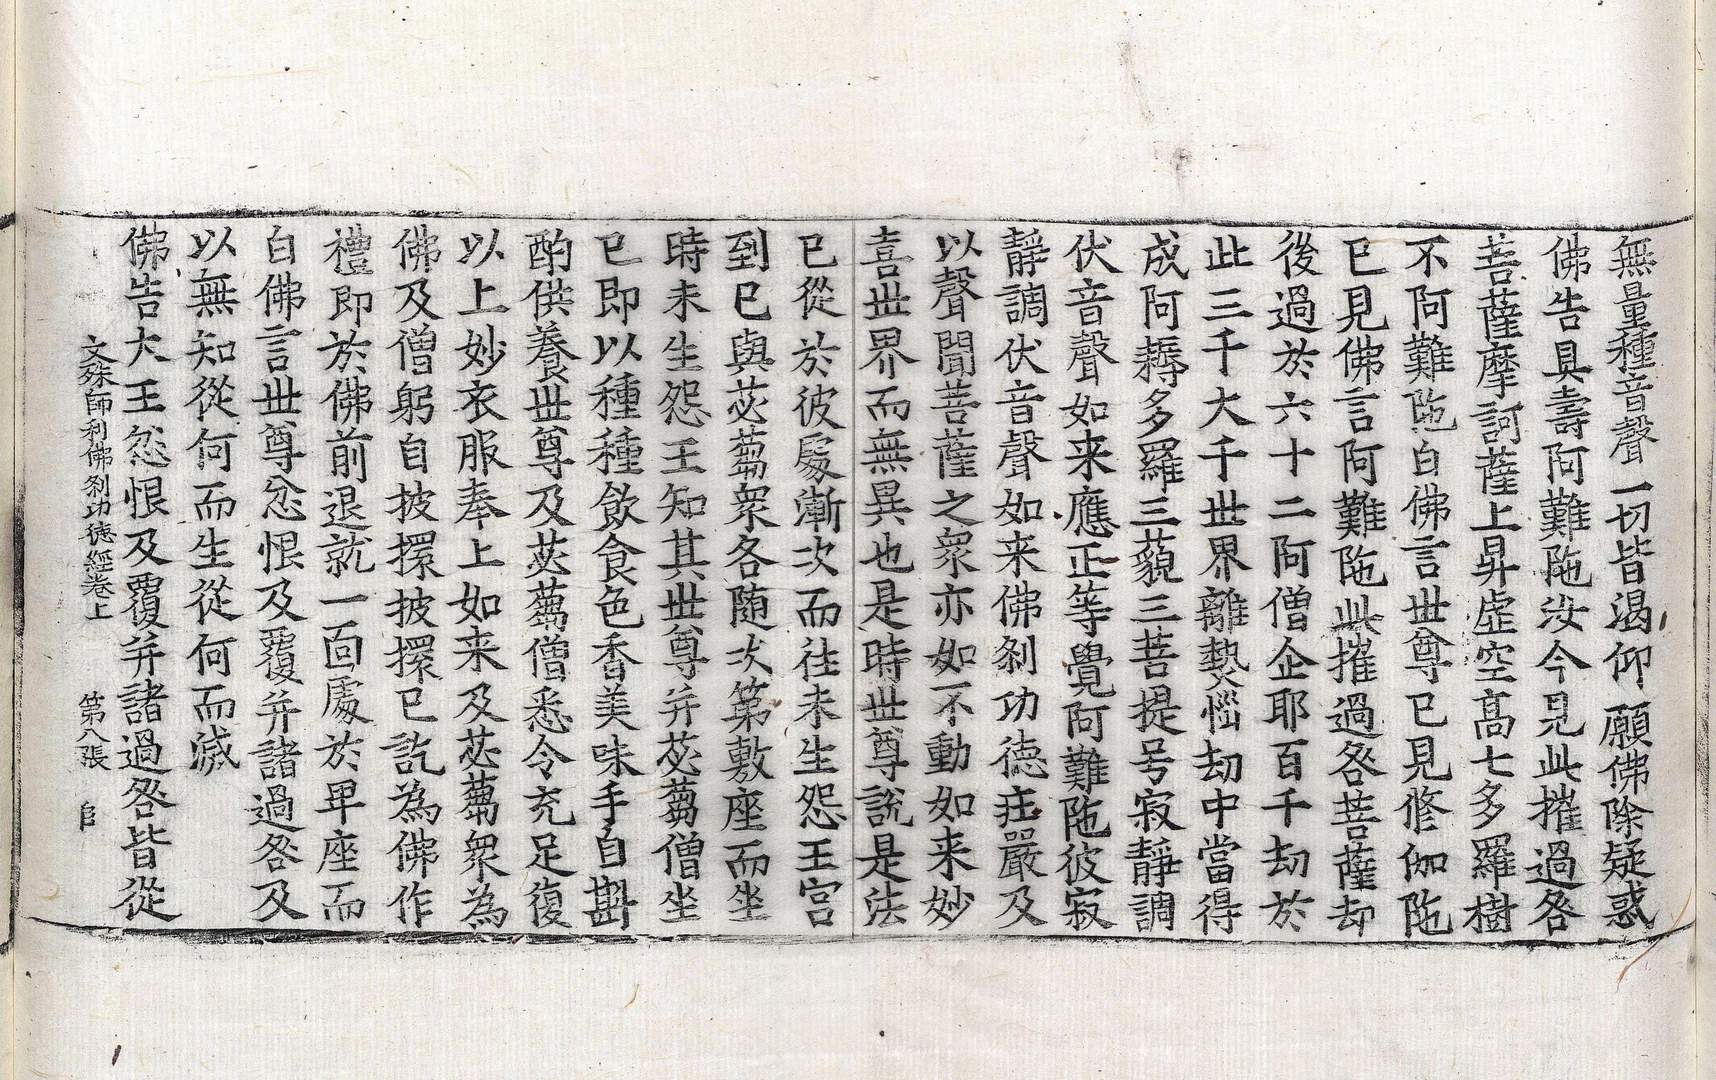 無量種音聲一切皆渴仰願佛除疑惑
佛告具壽阿難陁汝今見此摧過咎
菩薩摩訶薩上昇虛空髙七多羅樹
不阿難陁白佛言世尊已見修伽陁
已見佛言阿難陁此摧過咎菩薩却
後過於六十二阿僧企耶百千劫於
此三千大千世界離熱惱劫中當得
成阿耨多羅三藐三菩提号寂靜調
伏音聲如来應正等覺阿難陁彼寂
靜調伏音聲如来佛剎功德莊嚴及
以聲聞菩薩之衆亦如不動如来妙
喜世界而無異也是時世尊說是法
已從於彼處漸次而往未生怨王宫
到已與苾蒭衆各随次第敷座而坐
時未生怨王知其世尊并苾蒭僧坐
已即以種種飲食色香美味手自斟
酌供養世尊及苾蒭僧悉令充足復
以上妙衣服奉上如来及苾蒭衆為
佛及僧躬自披擐披擐已訖為佛作
禮即於佛前退就一面處於卑座而
白佛言世尊忿恨及覆并諸過咎及
以無知從何而生從何而滅
佛告大王忿恨及覆并諸過咎皆從
文殊師利佛剎功德經卷上　第八張